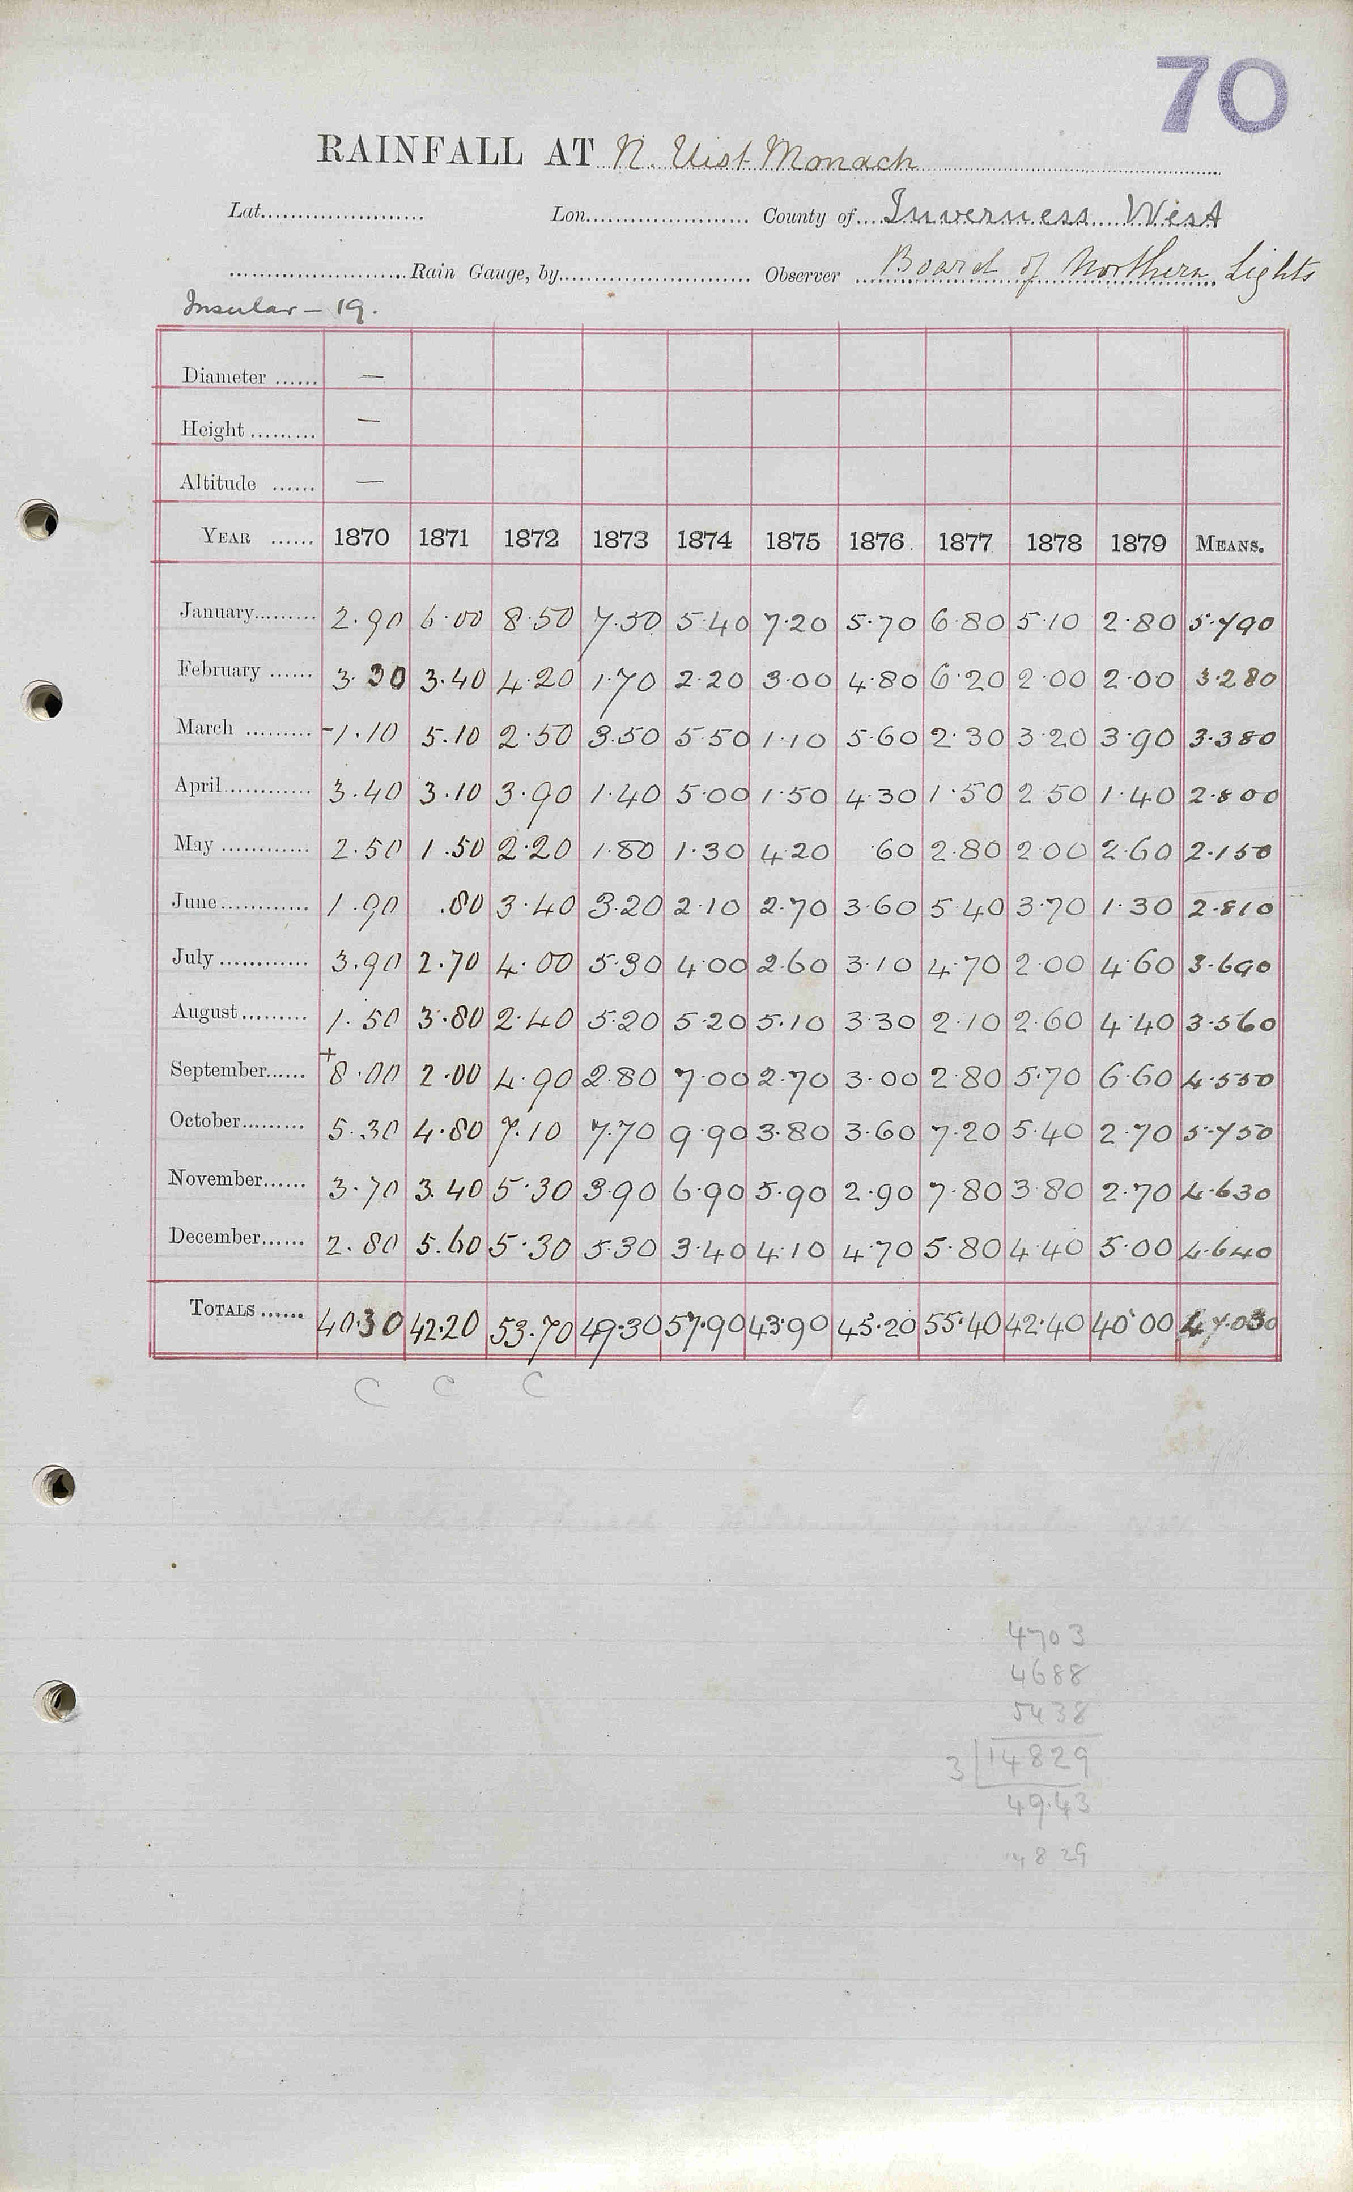 70
RAINFALL AT N. Uist Monach
Lat. Lon. County of Inverness West
Rain Gauge, by Observer Board of Northern Lights
Insular - 19.
Diameter —
Height —
Altitude —
YEAR 1870 1871 1872 1873 1874 1875 1876 1877 1878 1879 MEANS.
January 2.90 6.00 8.50 7.30 5.40 7.20 5.70 6.80 5.10 2.80 5.790
February 3.30 3.40 4.20 1.70 2.20 3.00 4.80 6.20 2.00 2.00 3.280
March -1.10 5.10 2.50 3.50 5.50 1.10 5.60 2.30 3.20 3.90 3.380
April 3.40 3.10 3.90 1.40 5.00 1.50 4.30 1.50 2.50 1.40 2.800
May 2.50 1.50 2.20 1.80 1.30 4.20 .60 2.80 2.00 2.60 2.150
June 1.90 .80 3.40 3.20 2.10 2.70 3.60 5.40 3.70 1.30 2.810
July 3.90 2.70 4.00 5.30 4.00 2.60 3.10 4.70 2.00 4.60 3.690
August 1.50 3.80 2.40 5.20 5.20 5.10 3.30 2.10 2.60 4.40 3.560
September +8.00 2.00 4.90 2.80 7.00 2.70 3.00 2.80 5.70 6.60 4.550
October 5.30 4.80 7.10 7.70 9.90 3.80 3.60 7.20 5.40 2.70 5.750
November 3.70 3.40 5.30 3.90 6.90 5.90 2.90 7.80 3.80 2.70 4.630
December 2.80 5.60 5.30 5.30 3.40 4.10 4.70 5.80 4.40 5.00 4.640
TOTALS 40.30 42.20 53.70 49.30 57.90 43.90 45.20 55.40 42.40 40.00 47.030
C C C
4703
4688
5438
3 14829
49.43
4829